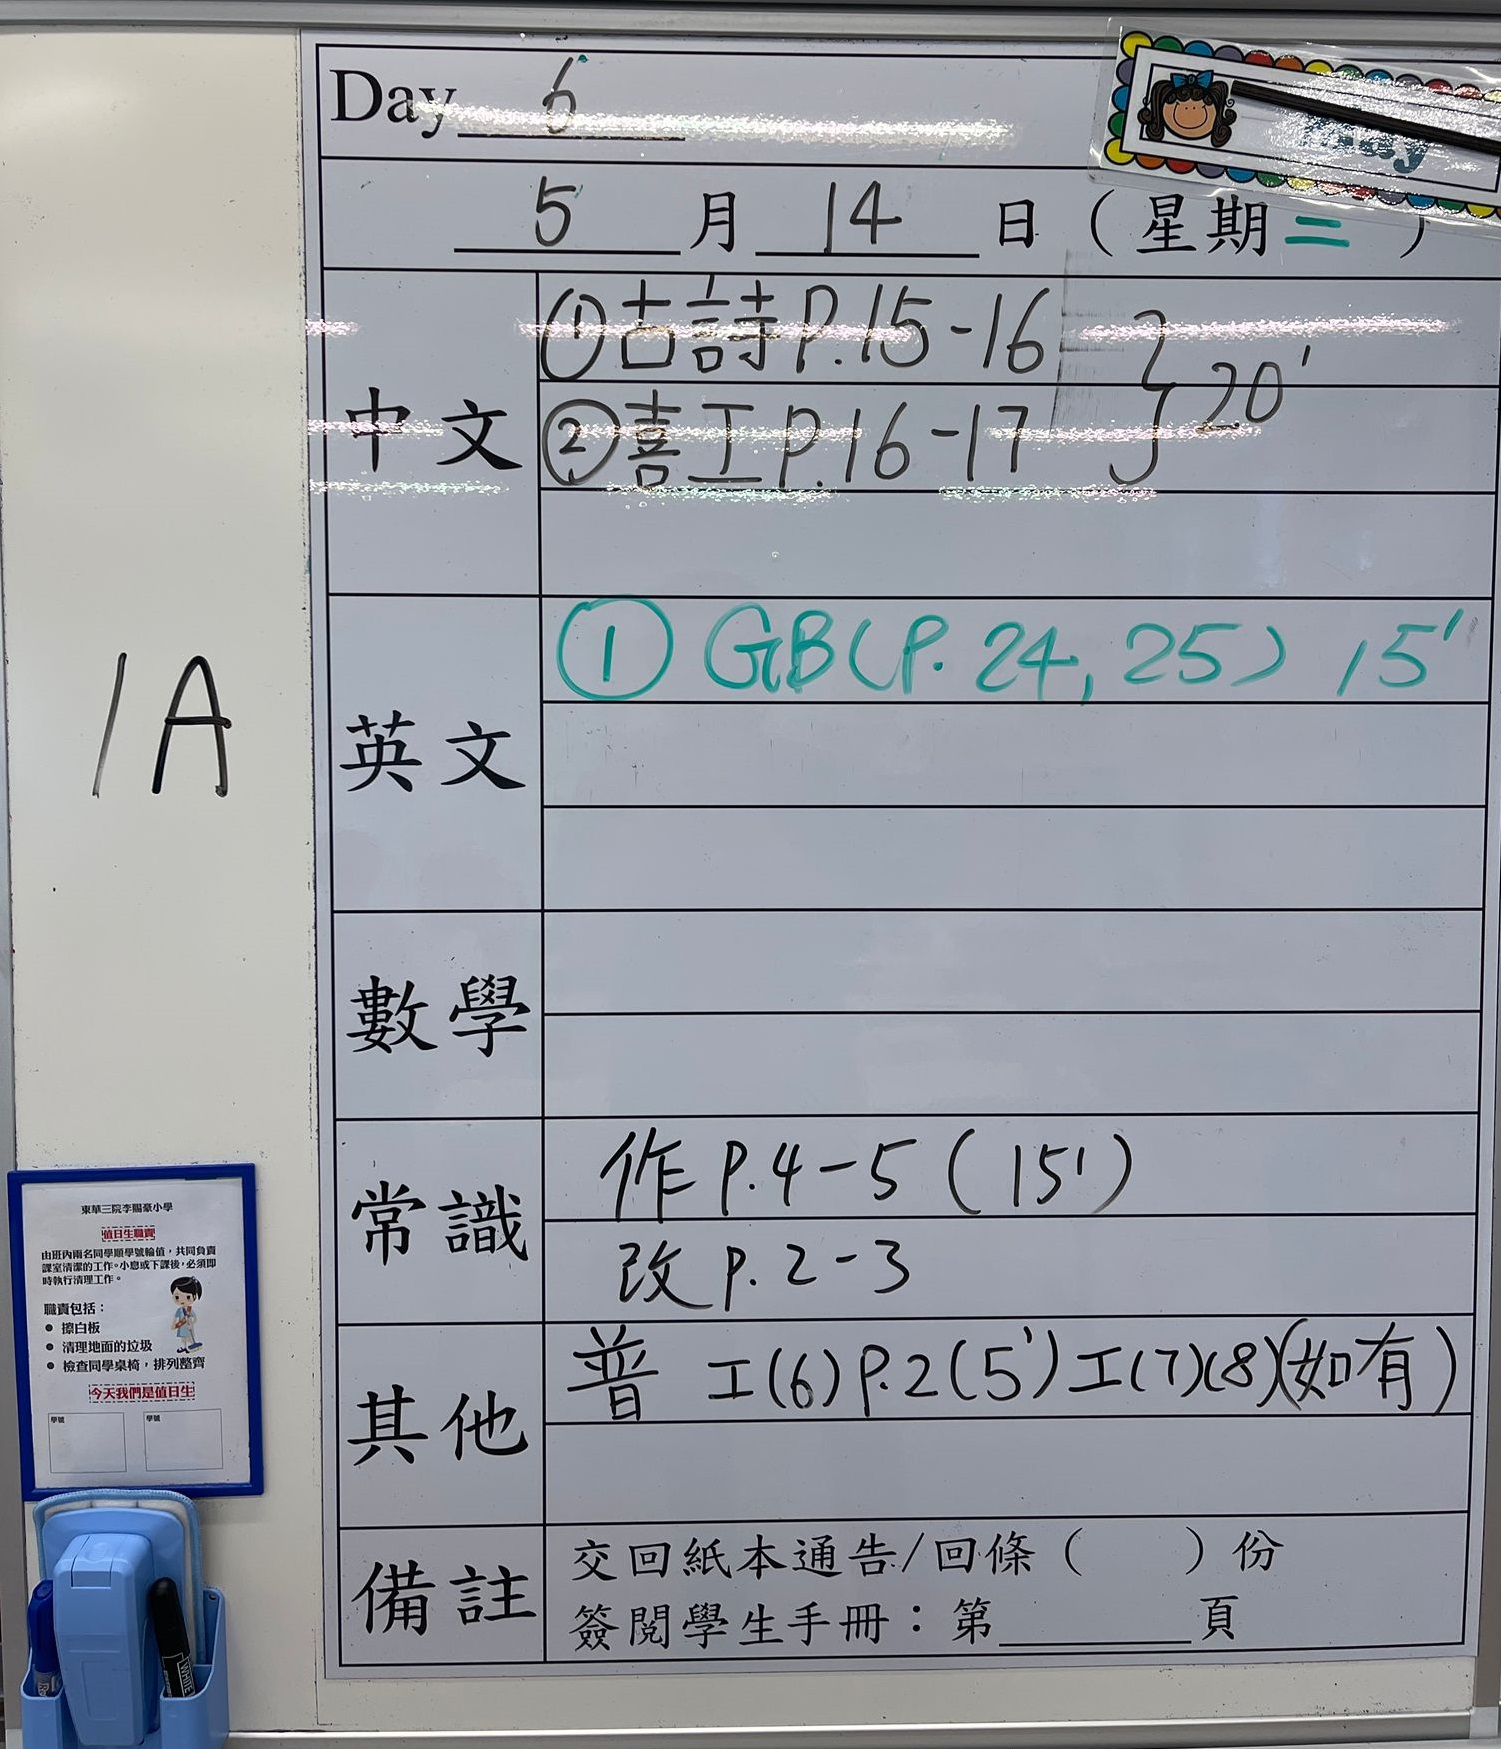 Day 6
May
5 月 14 日 (星期二)
中文
①古詩 P.15-16
②喜工 P.16-17 } 20'
1A
英文
① GB(P. 24, 25) 15'
數學
常識
作 P.4-5 (15')
改 P.2-3
其他
普 工(6) P.2 (5') 工(7)(8)(如有)
備註
交回紙本通告/回條 ( ) 份
簽閱學生手冊：第______頁
東華三院李賜豪小學
值日生職責
由班內兩名同學順學號輪值，共同負責
課室清潔的工作。小息或下課後，必須即
時執行清理工作。
職責包括：
● 擦白板
● 清理地面的垃圾
● 檢查同學桌椅，排列整齊
今天我們是值日生
學號 學號
WHITE